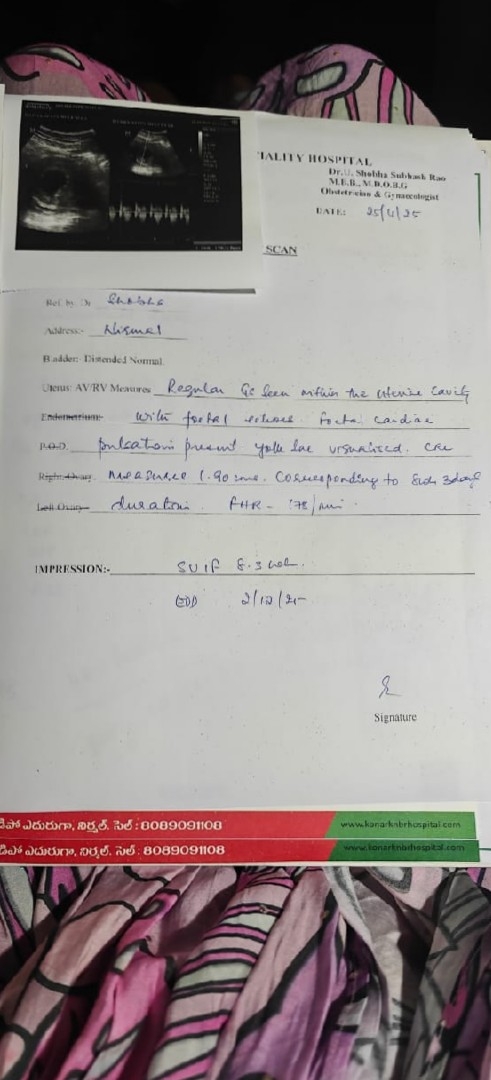 CIALITY HOSPITAL
Dr.U. Shobha Subhash Rao
M.B.B., M.D.O.B.G
Obstetrician & Gynaecologist
DATE: 25/4/25
SCAN
Ref. by. Dr Shobha
Address:- Nirmal
Bladder:- Distended Normal
Uterus: AV/RV Measures Regular GS Seen within the Uterine Cavity
Endometrium: with foetal echoes. foetal cardiac
P.O.D. pulsations present yolk sac visualised. CRL
Right Ovary measured 1.90 cms. Corresponding to 8wks 3days
Left Ovary duration. FHR - 178/min.
IMPRESSION:- SUIF 8.3
EDD 2/12/25
Signature
ఎదురుగా, నిర్మల్. సెల్ : 8089091108
www.konarknbrhospital.com
డిపో ఎదురుగా, నిర్మల్. సెల్ : 8089091108
www.konarknbrhospital.com